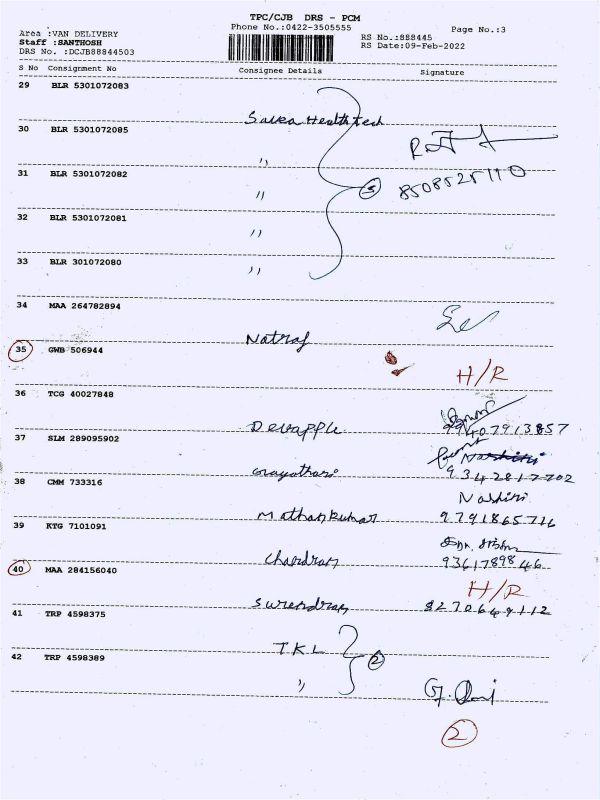 TPC/CJB DRS - PCM
Area :VAN DELIVERY
Phone No.:0422-3505555
Page No.:3
Staff :SANTHOSH
RS No.:888445
DRS No. :DCJB88844503
RS Date:09-Feb-2022
S No Consignment No Consignee Details Signature
29 BLR 5301072083
Saksa Healthtech
30 BLR 5301072085
"
31 BLR 5301072082
8508525110
" 5
32 BLR 5301072081
"
33 BLR 301072080
"
34 MAA 264782894
Natraj
35 GWB 506944
H/R
36 TCG 40027848
Devapple
99407913857
37 SLM 289095902
Nashini
Gayathari 9342817702
38 CMM 733316
Nashini
Mathan Kumar 9791865716
39 KTG 7101091
Chandran 9361789846
40 MAA 284156040
H/R
Surendran 8270649112
41 TRP 4598375
TKL
2
42 TRP 4598389
"
2